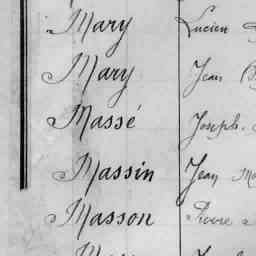 Mary Lucien
Mary Jean
Massé Joseph
Massin Jean
Masson Pierre